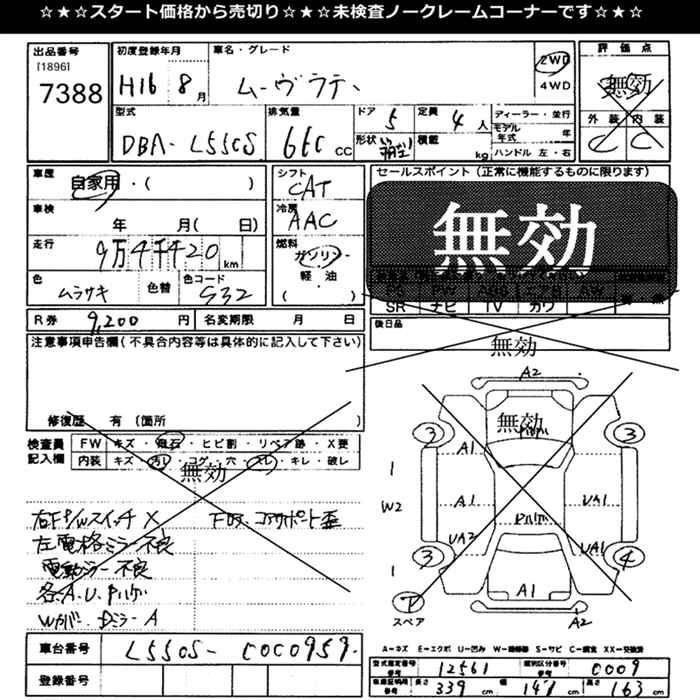 ☆★☆★スタート価格から売切り☆★☆★未検査ノークレームコーナーです☆★☆
出品番号
[1896]
7388
初度登録年月
H16 8月
車名・グレード
ムーヴラテ
2WD
4WD
評価点
無効
外装 内装
C C
型式
DBA- L550S
排気量
660 cc
ドア
5
形状
定員
4人
積載
kg
ディーラー・並行
モデル年式 年
ハンドル 左・右
車歴
自家用・( )
車検
年 月( 日)
走行
9万4千420 km
色
ムラサキ
色替
色コード
G32
シフト
CAT
冷房
AAC
燃料
ガソリン
軽・油
( )
セールスポイント(正常に機能するものに限ります)
無効
SR ナビ TV カワ
R券 9,200 円
名変期限 月 日
後日品
無効
注意事項申告欄(不具合内容等は具体的に記入して下さい)
修復歴 有 (箇所 )
検査員記入欄
FW キズ・飛石・ヒビ割・リペア跡・X要
内装 キズ・汚レ・コゲ・穴・スレ・キレ・破レ
無効
右F P/Wスイッチ X
左電格ミラー不良
電動ミラー不良
各A.U.
A
車台番号
L550S-
登録番号
A2
無効
3 3
A1
1
W2
A1
UA1
UA2
UA1
3 4
1
A1
T
スペア
A2
A-キズ E-エクボ U-凹み W-補修跡 S-サビ C-腐食 XX-交換済
型式指定番号 参考
12561
類別区分番号 参考
0009
車検証期間 参考
長さ 339 cm
幅 147 cm
高さ 163 cm